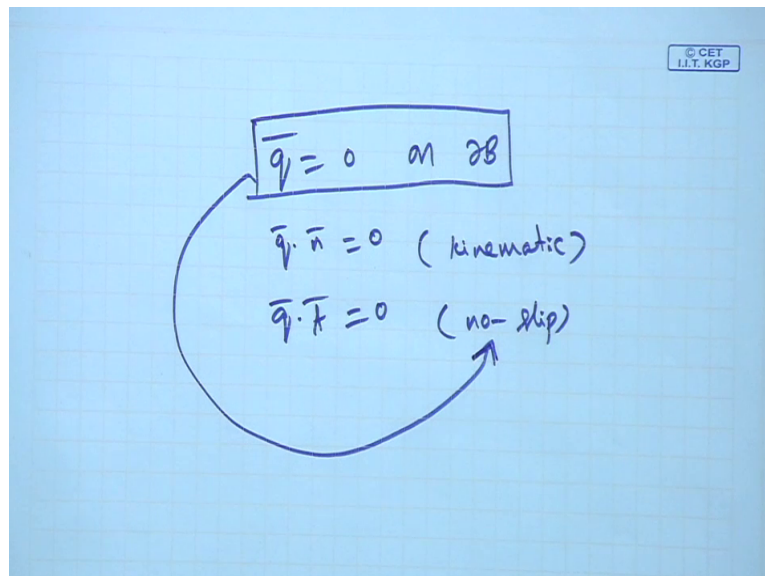 © CET
I.I.T. KGP
q̄ = 0 on ∂B
q̄ . n̄ = 0 ( kinematic )
q̄ . t̄ = 0 ( no- slip )